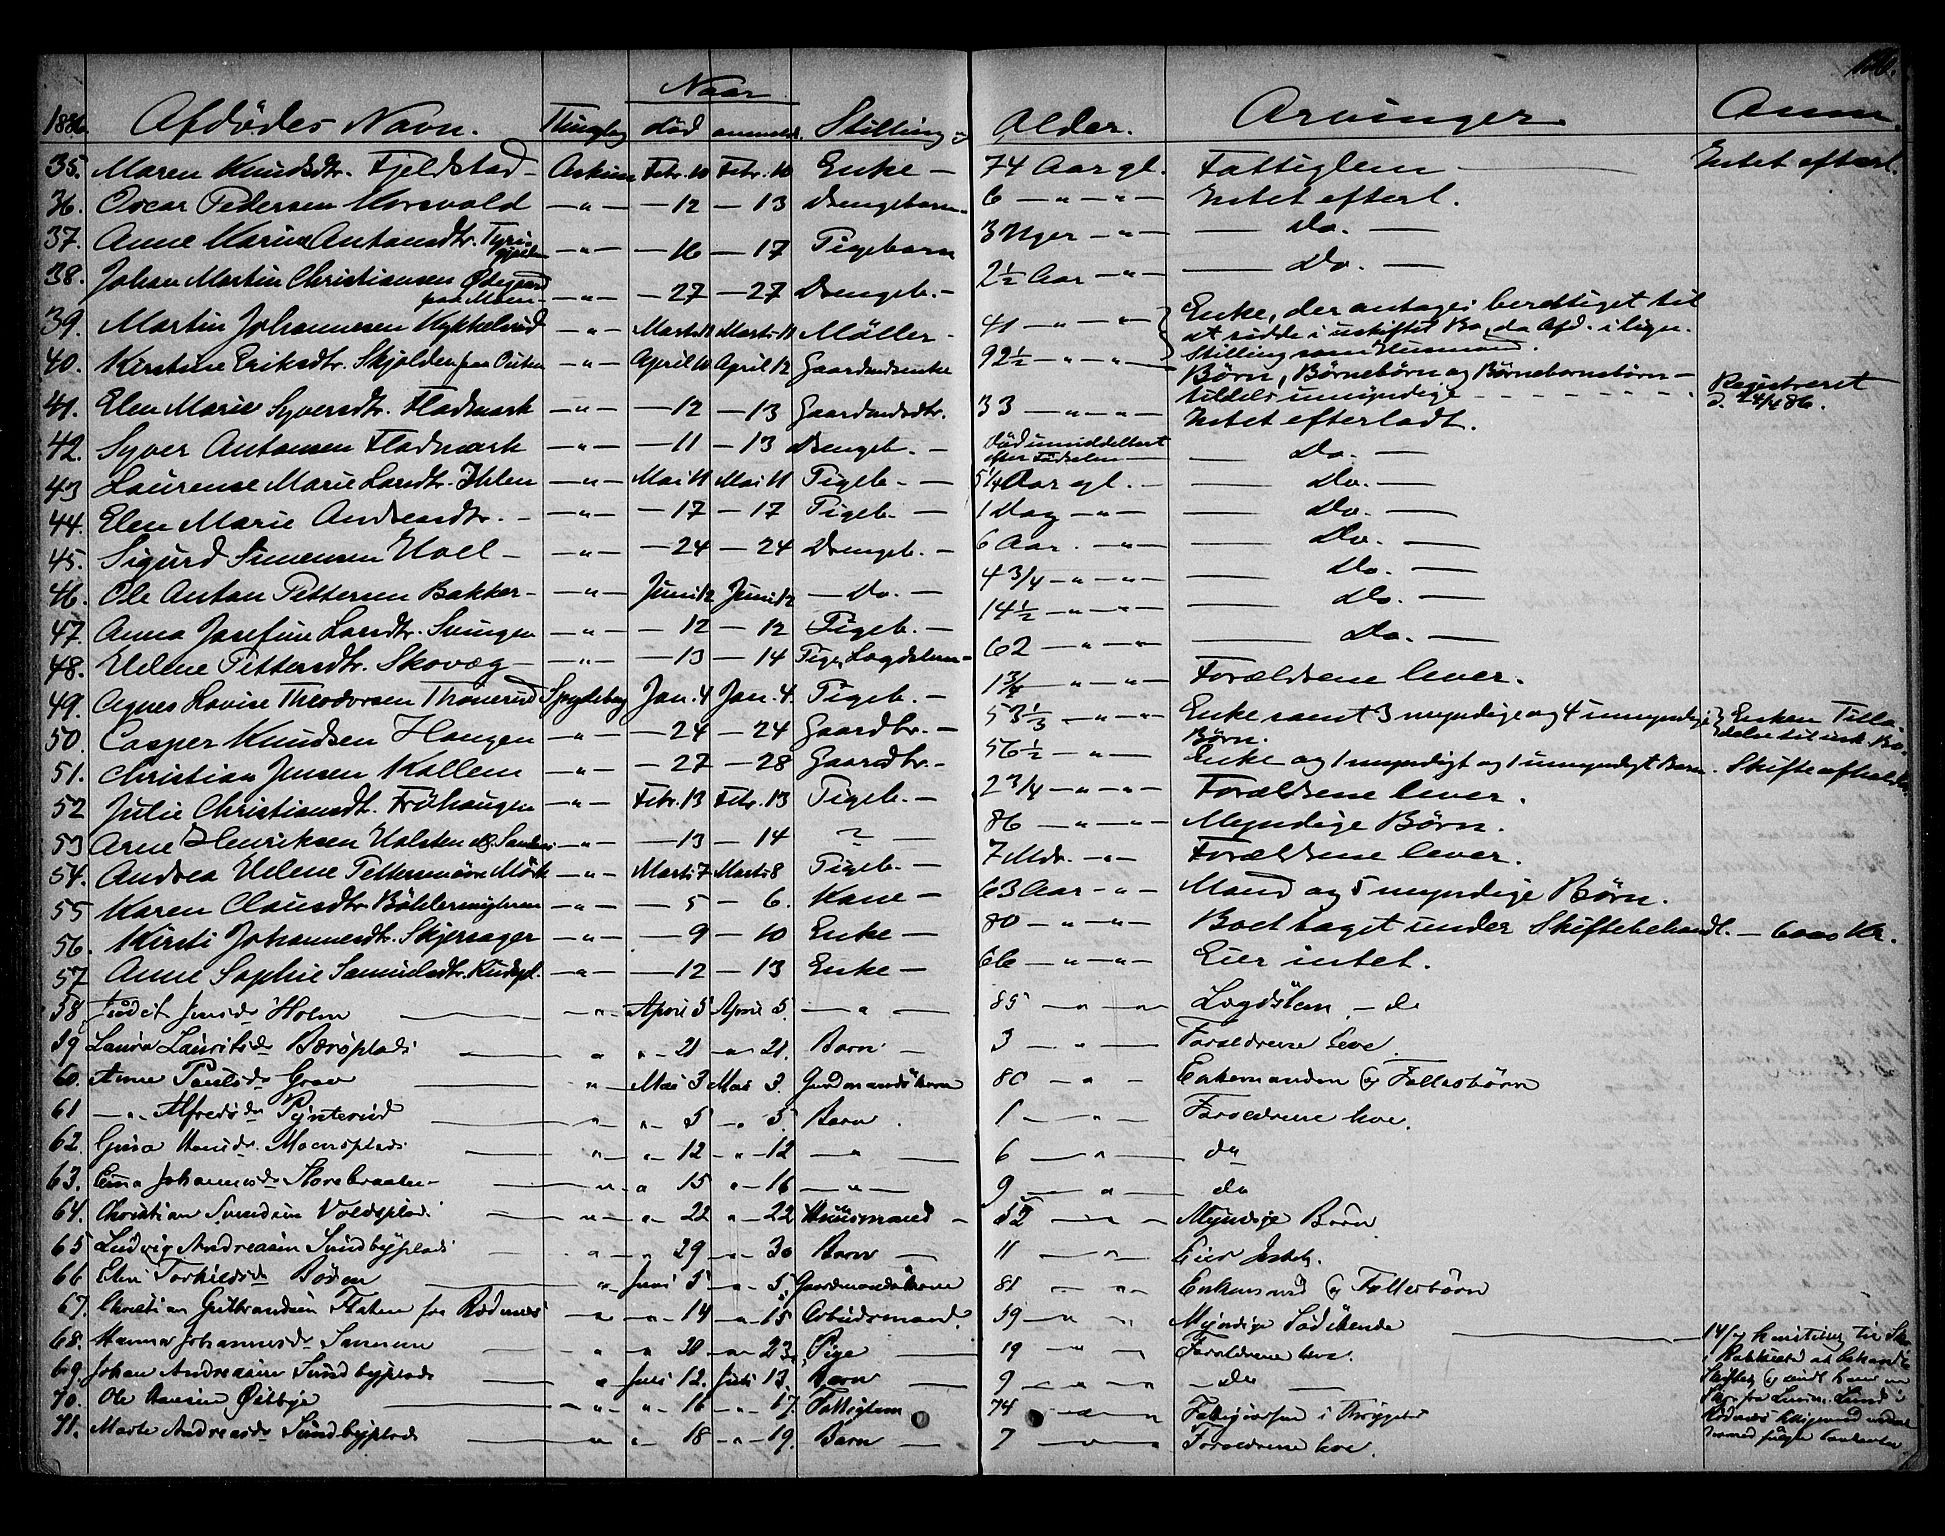 120.
Naar
1886. Afdødes Navn. Thinglag død anmeldt. Stilling Alder. Arvinger Anm.
35. Maren Knudsdtr. Fjeldstad – Askim Febr. 10 Febr. 10 Enke – 74 Aar gl. Fattiglem — Intet efterl.
36. Oscar Pedersen Korsvold — " — — 12 — 13 Drengebarn. 6 — " — " — Intet efterl.
37. Anne Karine Antonsdtr. — " — — 16 — 17 Pigebarn 3 Uger — " — — Do. —
38. Johan Martin Christiansen Ødegaard
paa Moen – — " — — 27 — 27 Drengeb. – 2½ Aar — " — — Do. —
39. Martin Johannesen Kykkelsrud — " — Marts 11 Marts 11 Møller – 41 — " — " — Enke, der antages berettiget til
at sidde i uskiftet Bo, da Afd. i lign.
Stilling som Husmand.
40. Kirstine Eriksdtr. Skjolden — " — April 10 April 12 Gaardmdsenke 92½ — " — " — Børn, Børnebørn og Børnebørnsbørn –
tildels umyndige - - - - - - - . Registreret
d. 24/4 86.
41. Elen Marie Syversdtr. Fladmark — " — — 12 — 13 Gaardmdsdtr. 33 — " — " — Intet efterladt.
42. Syver Antonsen Fladmark — " — — 11 — 13 Drengeb. – død umiddelbart
efter Fødselen — — Do. —
43 Laurense Marie Larsdtr. Ihlen — " — Mai 11 Mai 11 Pigeb. – 5¼ Aar gl. – — Do. —
44. Elen Marie Andreasdtr. – — " — — 17 — 17 Pigeb. – 1 Dag — " — — Do. —
45. Sigurd Simensen Hoel – — " — — 24 — 24 Drengeb. – 6 Aar. — " — — Do. —
46. Ole Anton Pettersen Bakker – — " — Juni 12 Juni 12 — Do. — 4 3/4 — " — " — — Do. —
47. Anna Josefine Larsdtr. Svingen — " — — 12 — 12 Pigeb. – 14½ — " — " — — Do. —
48. Helene Pettersdtr. Skovæg – — " — — 13 — 14 Pige, Lægdslem – 62 — " — " — — Do. —
49. Agnes Lovise Theodorsen Thonerud Spydeberg Jan. 4 Jan. 4. Pigeb. – 1 3/4 — " — " — Forældrene lever.
50. Casper Knudsen Haugen — " — — 24 — 24 Gaardbr. – 53 1/3 — " — " — Enke samt 3 myndige og 4 umyndige
Børn. Enken Tilla-
delse til usk. Bo.
51. Christian Jensen Kollem — " — — 27 — 28 Gaardbr – 56½ — " — Enke og 1 myndigt og 1 umyndigt Barn. Skifte afholdt.
52 Julie Christiansdt. Frøhaugen — " — Febr. 13 Febr. 13 Pigeb. – 2 3/4 — " — " — Forældrene lever.
53 Arne Henriksen Holsten — " — — 13 — 14 — ? — 86 — " — " — Myndige Børn.
54. Andrea Helene Mörk — " — Marts 7 Marts 8 Pigeb. – 7 Mdr. — " — Forældrene lever.
55 Karen Clausdtr — " — — 5 — 6. Kone – 63 Aar — " — Mand og 5 myndige Børn.
56. Kirsti Johannesdt. Skjersager — " — — 9 — 10 Enke – 80 — " — " — Boet taget under Skiftebehandl. – 6000 Kr.
57 Anne Sophie Samuelsdtr. — " — — 12 — 13 Enke – 66 — " — " — Eier intet.
58. Judit Jensd. Holm — " April 5 April 5. — " — 85 — " — Lægdslem – do
59 Laura Lauritsdr — " " 21 " 21. Barn – 3 — " — Forældrene leve.
60. Anne Paulsdr Grav — " Mai 3 Mai 3. 80 — " — Enkemanden og Fællesbørn
61 — " Alfredsdr Pynterud — " " 5 " 5. Barn. 1 — " — Forældrene leve.
62. Gina Hansdr. Moensplads — " " 12 " 12 — " — 6 — " — do
63. Johannesdr Storebraaten – — " " 15 " 16 — " — 9 — " — do
64. Christian Svendsen Voldsplads — " " 22 " 22 Huusmand – 52 — " — Myndige Børn
65 Ludvig Andreassen Sundbyplads — " " 29 " 30 Barn — 11 — " Eier Intet.
66 Eli Torkildsdr Boden — " Juni 5 " 5. 81 — " Enkemand og Fællesbørn
67. Christian Gulbrandsen Flaten fra Rødenes — " " 14 " 15 Arbeidsmand. 59 — " Myndige Sødskende
68. Hanna Johannesdr — " " 20 " 23. Pige — 19 — " Forældrene leve.
69. Johan Andreassen Sundbyplads — " Juli 12. Juli 13. Barn — 9 — " — do —
70. Ole Hansen Østbye — " " 16 " 17. Fattiglem 74 — " i Trøgstad
71. Marte Andreasdr Sundbyplads — " " 18 " 19. Barn — 7 — " — Forældrene leve.